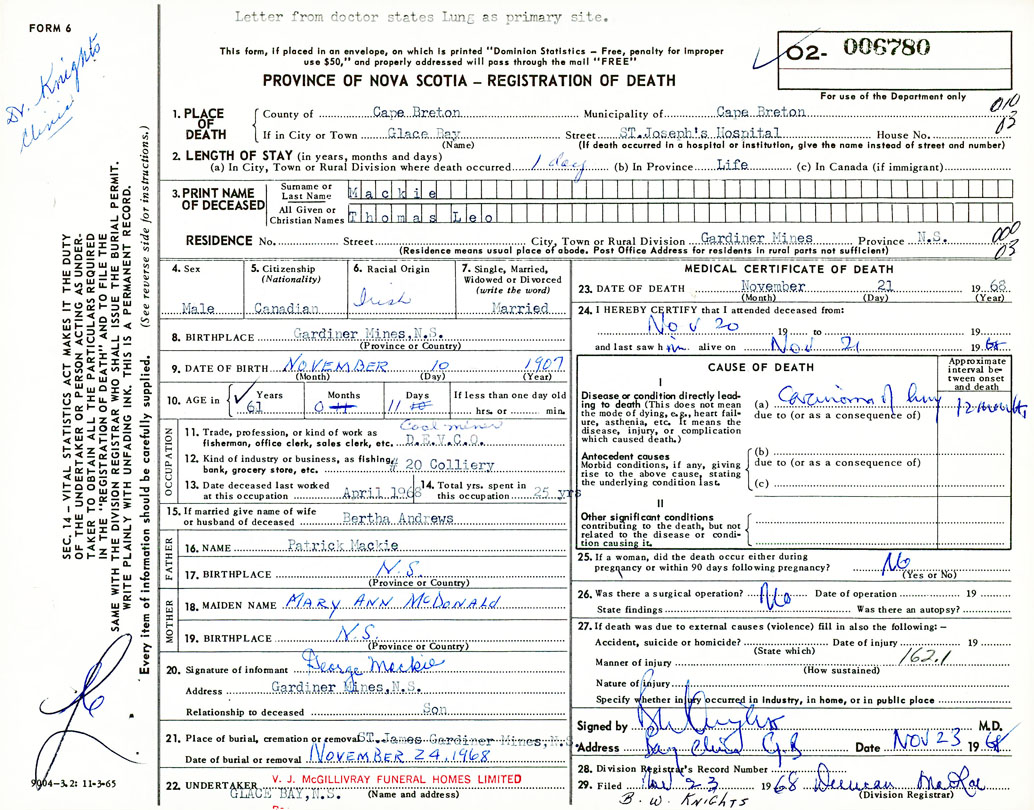 Letter from doctor states Lung as primary site.
FORM 6
Dr. Knights
Clinic
This form, if placed in an envelope, on which is printed "Dominion Statistics – Free, penalty for improper
use $50," and properly addressed will pass through the mail "FREE"
PROVINCE OF NOVA SCOTIA – REGISTRATION OF DEATH
O2- 006780
For use of the Department only
010
03
1. PLACE OF DEATH
County of Cape Breton Municipality of Cape Breton
If in City or Town Glace Bay Street ST.Joseph's Hospital House No.
(Name) (If death occurred in a hospital or institution, give the name instead of street and number)
2. LENGTH OF STAY (in years, months and days)
(a) In City, Town or Rural Division where death occurred 1 day (b) In Province Life (c) In Canada (if immigrant)
3. PRINT NAME OF DECEASED
Surname or Last Name Mackie
All Given or Christian Names Thomas Leo
RESIDENCE No. Street City, Town or Rural Division Gardiner Mines Province N.S.
(Residence means usual place of abode. Post Office Address for residents in rural parts not sufficient)
000
03
4. Sex
Male
5. Citizenship
(Nationality)
Canadian
6. Racial Origin
Irish
7. Single, Married,
Widowed or Divorced
(write the word)
Married
8. BIRTHPLACE Gardiner Mines,N.S.
(Province or Country)
9. DATE OF BIRTH NOVEMBER 10 1907
(Month) (Day) (Year)
10. AGE in Years Months Days If less than one day old
61 0 11 hrs. or min.
OCCUPATION
11. Trade, profession, or kind of work as Coal miner
fisherman, office clerk, sales clerk, etc. D.E.V.C.O.
12. Kind of industry or business, as fishing,
bank, grocery store, etc. # 20 Colliery
13. Date deceased last worked
at this occupation April 1968
14. Total yrs. spent in
this occupation 25 yrs
15. If married give name of wife
or husband of deceased Bertha Andrews
FATHER
16. NAME Patrick Mackie
17. BIRTHPLACE N.S.
(Province or Country)
MOTHER
18. MAIDEN NAME MARY ANN McDONALD
19. BIRTHPLACE N.S.
(Province or Country)
20. Signature of informant George Mackie
Address Gardiner Mines,N.S.
Relationship to deceased Son
21. Place of burial, cremation or removal ST.James Gardiner Mines,N.S.
Date of burial or removal NOVEMBER 24, 1968
V. J. McGILLIVRAY FUNERAL HOMES LIMITED
22. UNDERTAKER GLACE BAY,N.S. (Name and address)
MEDICAL CERTIFICATE OF DEATH
23. DATE OF DEATH November 21 1968
(Month) (Day) (Year)
24. I HEREBY CERTIFY that I attended deceased from:
Nov 20 19 to 19
and last saw him alive on Nov 21 1968
CAUSE OF DEATH
Approximate interval between onset and death
I
Disease or condition directly leading to death (This does not mean the mode of dying, e.g., heart failure, asthenia, etc. It means the disease, injury, or complication which caused death.)
(a) Carcinoma of lung 12 months
due to (or as a consequence of)
Antecedent causes
Morbid conditions, if any, giving rise to the above cause, stating the underlying condition last.
(b)
due to (or as a consequence of)
(c)
II
Other significant conditions
contributing to the death, but not related to the disease or condition causing it.
25. If a woman, did the death occur either during
pregnancy or within 90 days following pregnancy? No
(Yes or No)
26. Was there a surgical operation? No Date of operation 19
State findings Was there an autopsy?
27. If death was due to external causes (violence) fill in also the following: –
Accident, suicide or homicide? Date of injury 19
(State which)
162.1
Manner of injury
(How sustained)
Nature of injury
Specify whether injury occurred in Industry, in home, or in public place
Signed by M.D.
Address Bay Clinic G.B Date NOV 23 1968
28. Division Registrar's Record Number
29. Filed Nov 23 1968 Duncan MacRae
(Division Registrar)
B. W. KNIGHTS
SEC. 14 – VITAL STATISTICS ACT MAKES IT THE DUTY
OF THE UNDERTAKER OR PERSON ACTING AS UNDER-
TAKER TO OBTAIN ALL THE PARTICULARS REQUIRED
IN THE "REGISTRATION OF DEATH" AND TO FILE THE
SAME WITH THE DIVISION REGISTRAR WHO SHALL ISSUE THE BURIAL PERMIT.
WRITE PLAINLY WITH UNFADING INK. THIS IS A PERMANENT RECORD.
Every item of information should be carefully supplied. (See reverse side for instructions.)
9004-3.2: 11-3-65